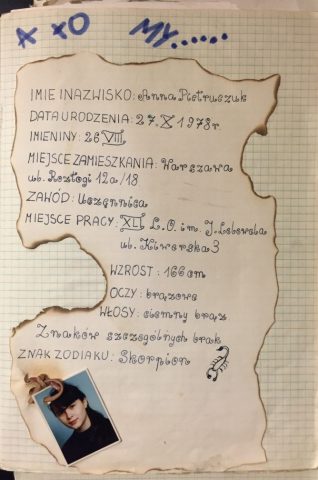 A XO MY......
IMIĘ I NAZWISKO: Anna Pietruszuk
DATA URODZENIA: 27.X 1978r.
IMIENINY: 26 VIII.
MIEJSCE ZAMIESZKANIA: Warszawa
ul. Rozłogi 12a/18
ZAWÓD: Uczennica
MIEJSCE PRACY: XLI L.O. im. J. Lelewela
ul. Kiwerska 3
WZROST: 166 cm
OCZY: brązowe
WŁOSY: ciemny brąz
Znaków szczególnych brak
ZNAK ZODIAKU: Skorpion